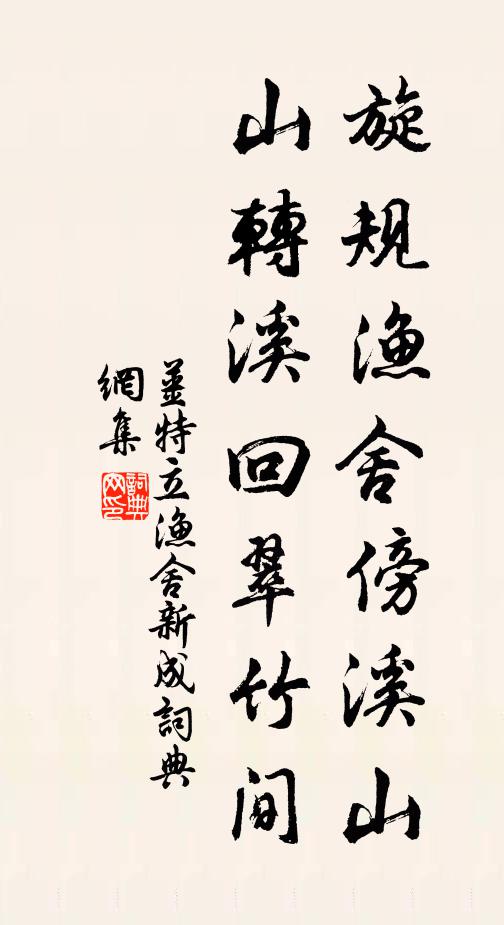 旋規漁舍傍溪山
山轉溪回翠竹間
薑特立漁舍新成詞典
網集
詞典
网印